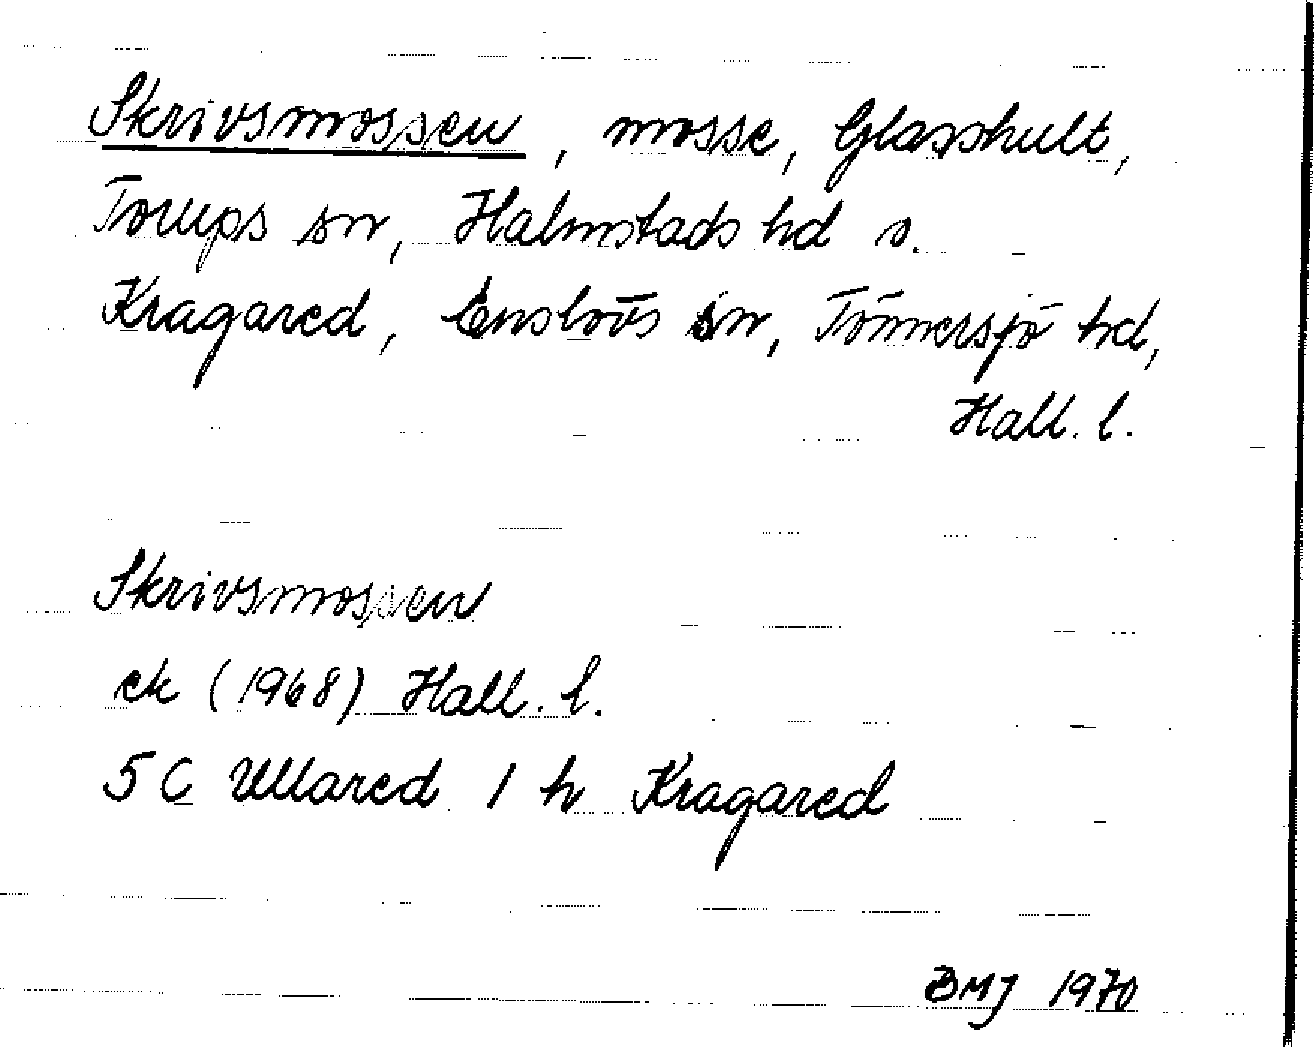 Skrivsmossen, mosse, Glasshult,
Torups sn, Halmstads hd s.
Kragared, Enslövs sn, Tönnersjö hd,
Hall. l.
Skrivsmossen
ek (1968) Hall. l.
5C Ullared 1 h Kragared
BMJ 1970